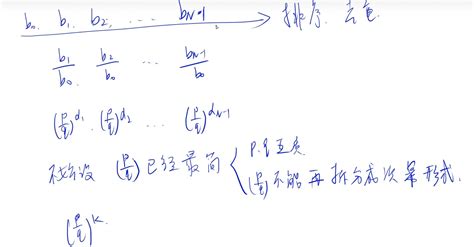 b₀. b₁. b₂. ... b_{N-1} → 排序. 去重
b₁/b₀ b₂/b₀ ... b_{N-1}/b₀
(p/q)^{d₁}. (p/q)^{d₂} ... (p/q)^{d_{N-1}}
不妨设 (p/q) 已经最简 { p.q互质.
(p/q) 不能再拆分成次幂形式.
(p/q)^k.